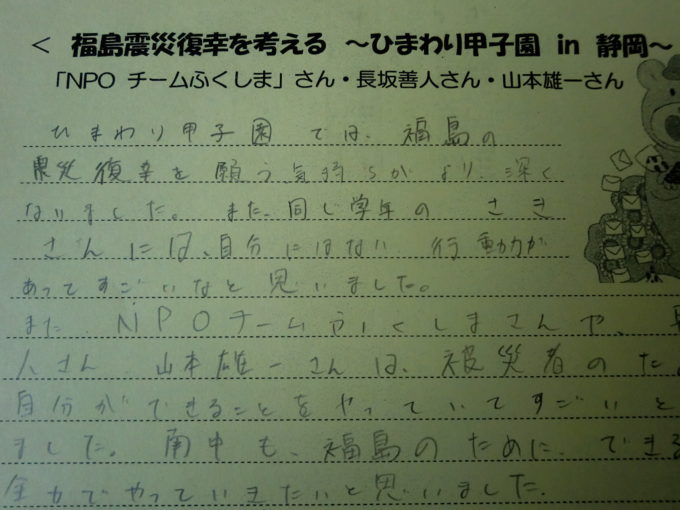 < 福島震災復幸を考える ～ひまわり甲子園 in 静岡～
「NPO チームふくしま」さん・長坂善人さん・山本雄一さん
ひまわり甲子園では、福島の
震災復幸を願う気持ちがより深く
なりました。また、同じ学年のさき
さんには、自分にはない行動力が
あってすごいなと思いました。
また、NPOチームふくしまさんや、
人さん、山本雄一さんは、被災者のた
自分ができることをやっていてすごいと
ました。南中も、福島のために、できる
全力でやっていきたいと思いました。